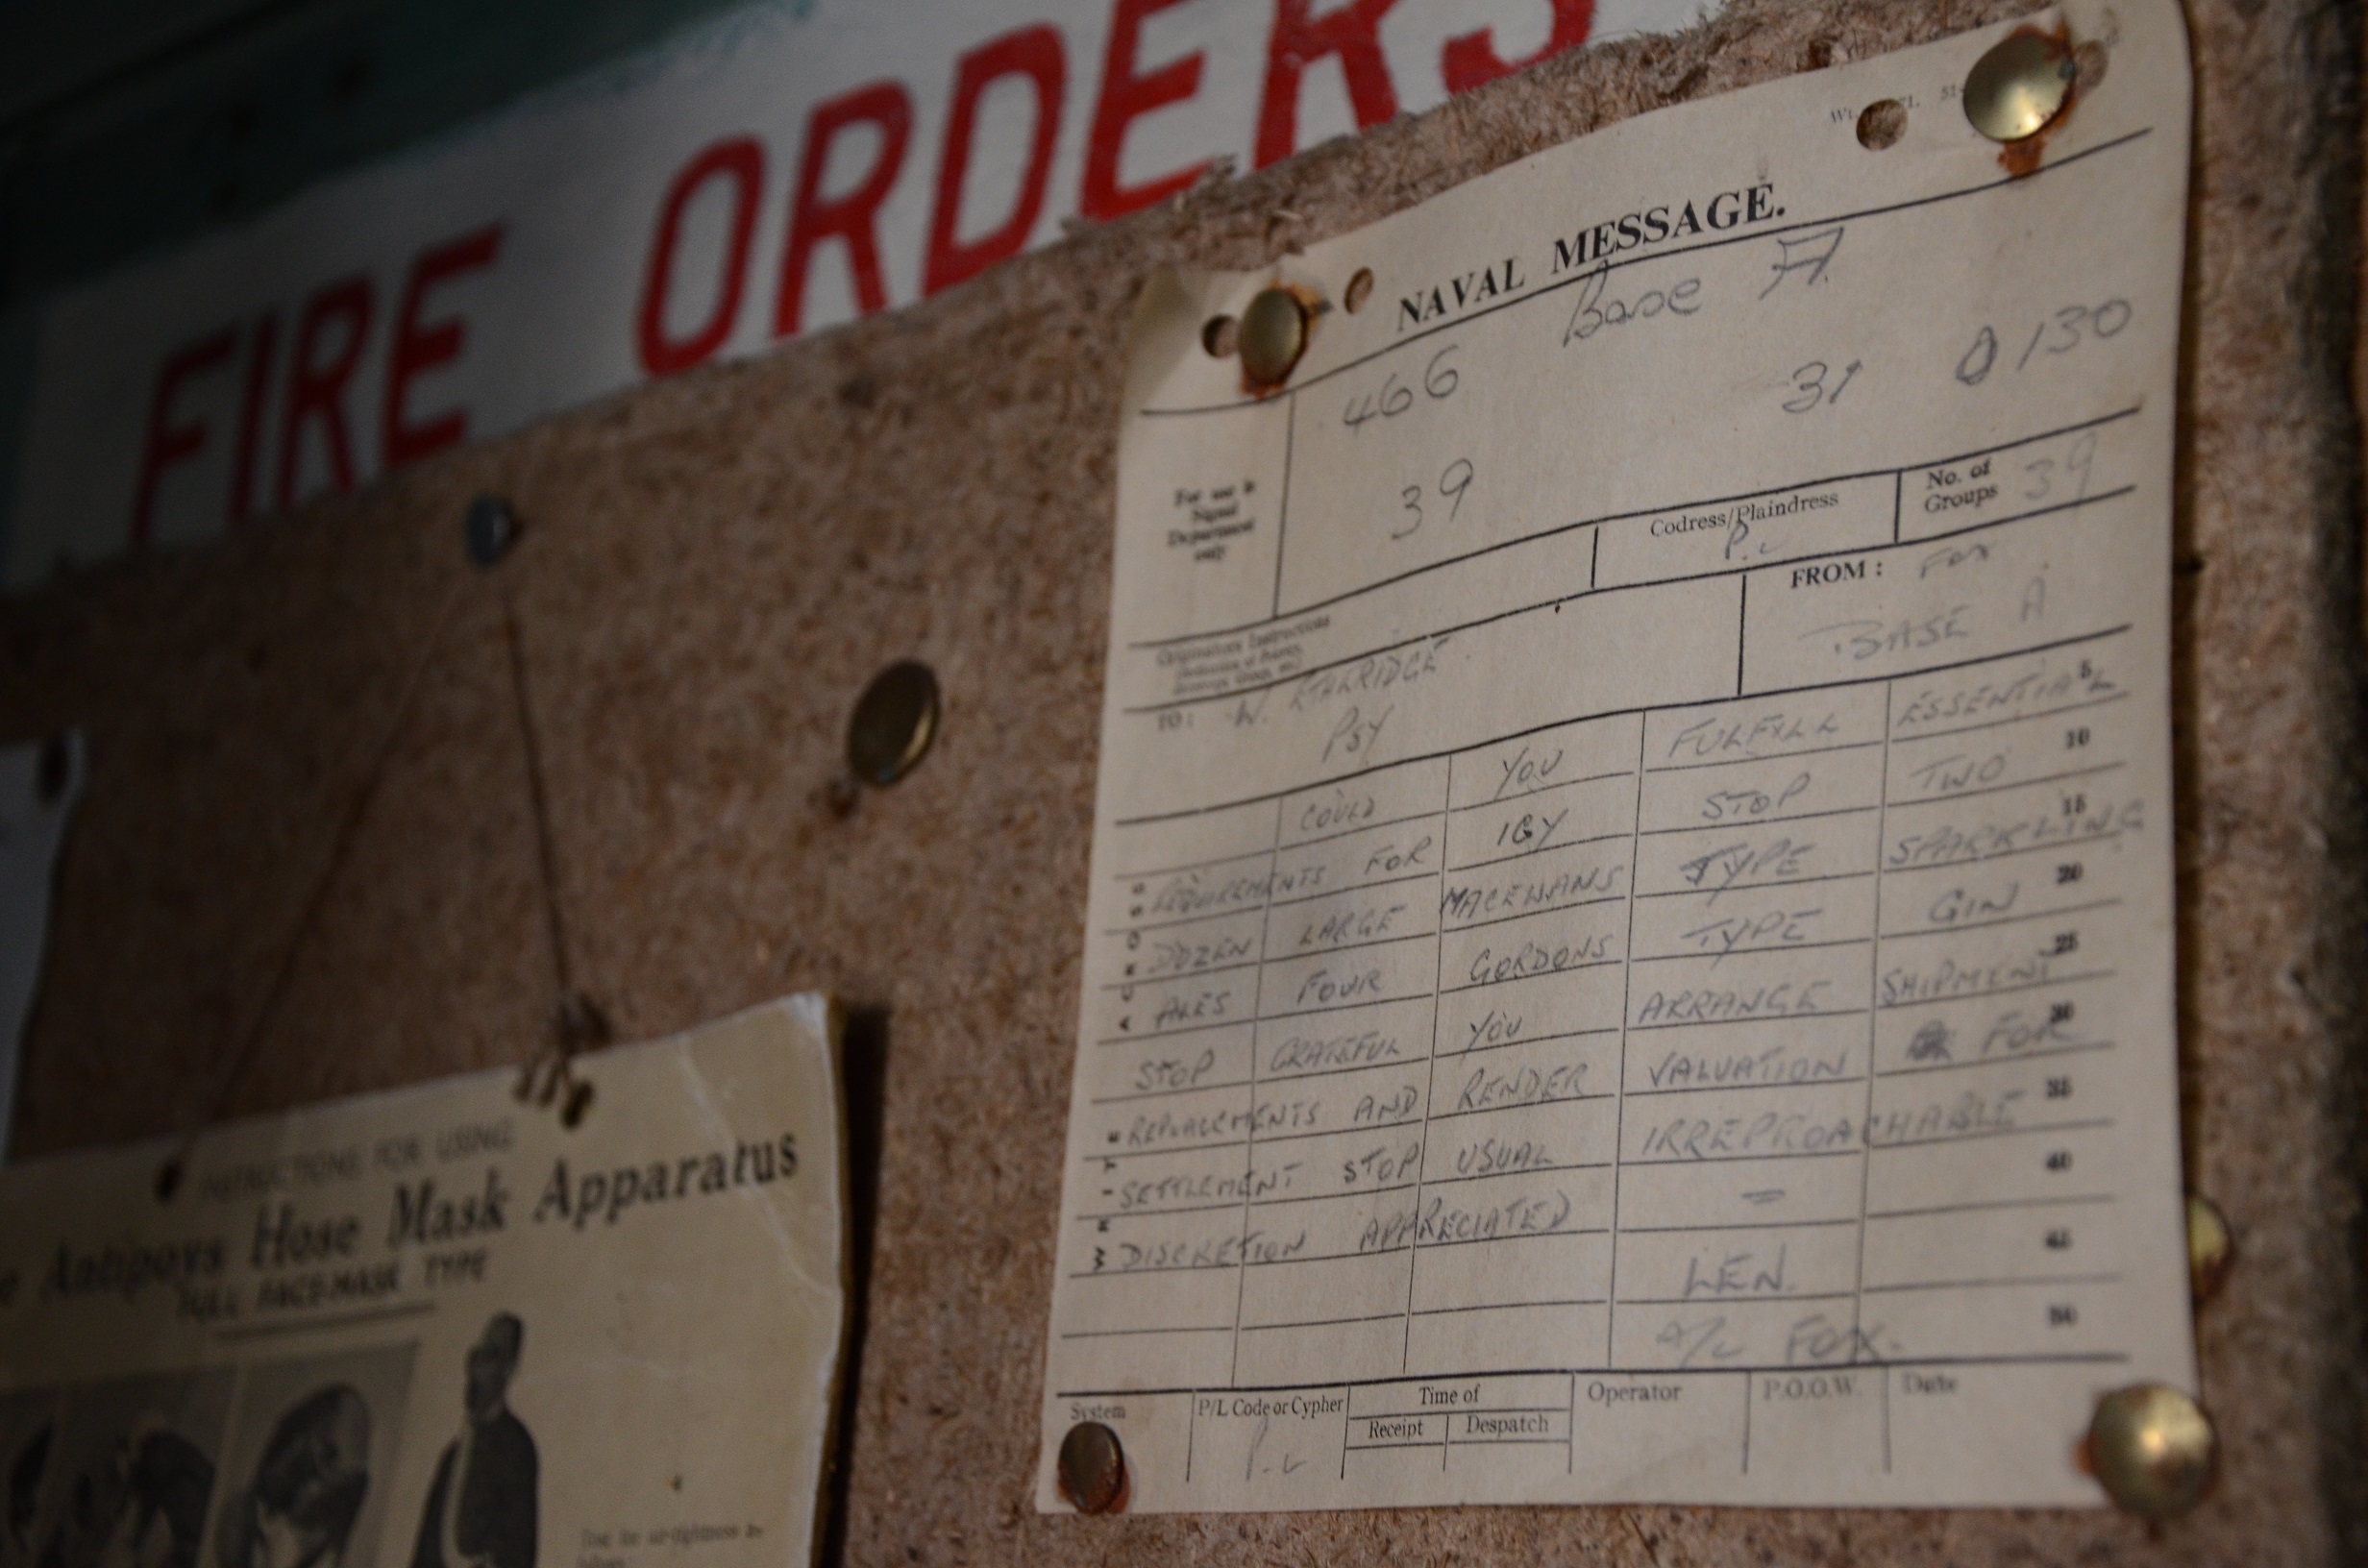 FIRE ORDERS
NAVAL MESSAGE.
Base A
466 31 0130
39
For use in
Signal
Department
only
Codress/Plaindress
P.L
No. of
Groups 39
Originators Instructions
TO: W. ETHERIDGE
PSY
FROM: FOX
BASE A
COULD YOU FULFILL ESSENTIAL 5
REQUIREMENTS FOR IGY STOP TWO 10
DOZEN LARGE MACEWANS TYPE SPARKLING 15
ALES FOUR GORDONS TYPE GIN 20
STOP GRATEFUL YOU ARRANGE SHIPMENT 25
REPLACEMENTS AND RENDER VALUATION FOR 30
SETTLEMENT STOP USUAL IRREPROACHABLE 35
DISCRETION APPRECIATED = 40
LEN. 45
A/C FOX. 50
WRITE ACROSS
System
P/L Code or Cypher
P.L
Time of
Receipt Despatch
Operator
P.O.O.W.
Date
INSTRUCTIONS FOR USING
Antipoys Hose Mask Apparatus
FULL FACE-MASK TYPE